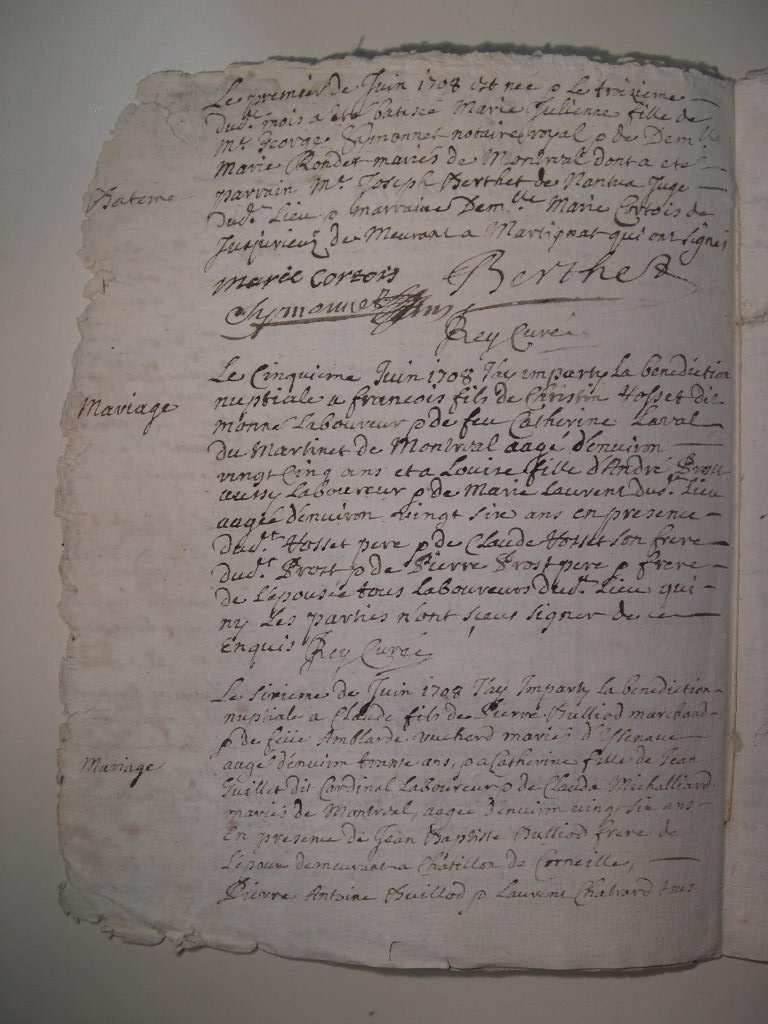 Le premier de Juin 1708 est née & le troizieme
dud.t mois a eté batisée Marie Julienne fille de
M.re George Chymonnet notaire royal & de Dem.lle
Marie Rondet mariés de Montreal dont a eté
Bateme
parrain M.re Joseph Berthet de Nantua Juge
dud.t Lieu & marraine Dem.lle Marie Cortois de
Jujurieu demeurant a Martignat qui ont signé
marie cortois Berthet
Chymonnet
Rey Curé
Le Cinquieme Juin 1708 J'ay imparty la benediction
Mariage
nuptiale a francois fils de Christin Hosset dit
monne Laboureur & de feu Catherine Laval
du Martinet de Montreal aagé d'environ
vingt Cinq ans et a Louise fille d'André Prost
aussy Laboureur & de Marie Laurent dud.t Lieu
aagée d'environ vingt sixe ans en presence
dud.t Hosset pere & de Claude Hosset son frere
dud.t Prost & de Pierre Prost pere & frere
de L'epousée tous Laboureurs dud.t Lieu qui
ny Les parties n'ont sceus signer de ce
Enquis Rey Curé
Le sixieme de Juin 1708 J'ay Imparty la benediction
nuptiale a Claude fils de Pierre Bulliod marchand
& de feüe Amblarde vucherd mariés d'Issenave
Mariage
aagé d'environ trante ans, & a Catherine fille de Jean
Guillet dit Cardinal Laboureur & de Clauda Michalliard
mariés de Montreal, aagée d'environ vingt six ans
En presence de Jean Baptiste Bulliod frere de
L'epoux demeurant a Châtillon de Corneilles,
Pierre Antoine Buillod & Laurent Chatrard tous